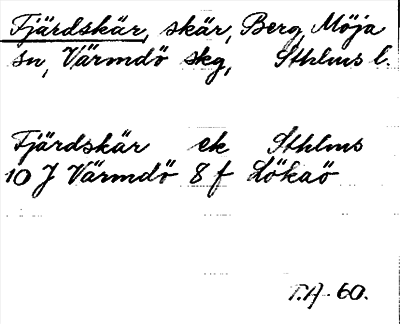 Fjärdskär, skär, Berg, Möja
sn, Värmdö skg, Sthlms l.
Fjärdskär ek Sthlms
10 J Värmdö 8 f Lökaö
T.A. 60.